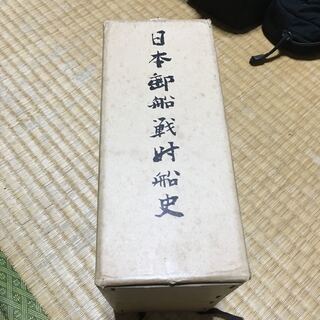 日本郵船戦时船史